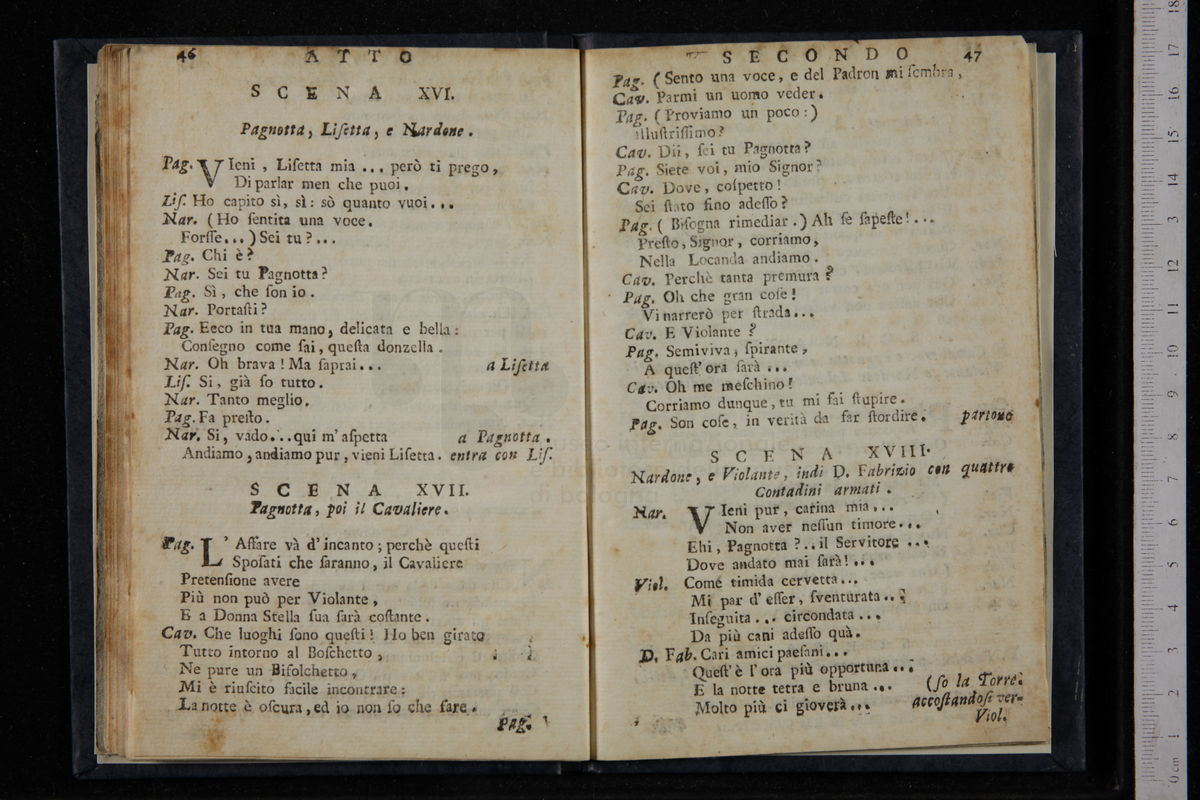 46 ATTO
SCENA XVI.
Pagnotta, Liſetta, e Nardone.
Pag. VIeni, Liſetta mia ... però ti prego,
Di parlar men che puoi.
Liſ. Ho capito sì, sì: sò quanto vuoi...
Nar. (Ho ſentita una voce.
Forſſe...) Sei tu?...
Pag. Chi è?
Nar. Sei tu Pagnotta?
Pag. Sì, che ſon io.
Nar. Portaſti?
Pag. Eeco in tua mano, delicata e bella:
Conſegno come ſai, queſta donzella.
Nar. Oh brava! Ma ſaprai... a Liſetta
Liſ. Si, già ſo tutto.
Nar. Tanto meglio.
Pag. Fa preſto.
Nar. Si, vado...qui m'aſpetta a Pagnotta.
Andiamo, andiamo pur, vieni Liſetta. entra con Liſ.
SCENA XVII.
Pagnotta, poi il Cavaliere.
Pag. L'Affare và d'incanto; perchè queſti
Spoſati che ſaranno, il Cavaliere
Pretenſione avere
Più non può per Violante,
E a Donna Stella ſua ſarà coſtante.
Cav. Che luoghi ſono queſti! Ho ben girato
Tutto intorno al Boſchetto,
Ne pure un Bifolchetto,
Mi è riuſcito facile incontrare:
La notte è oſcura, ed io non ſo che fare.
Pag.
SECONDO 47
Pag. (Sento una voce, e del Padron mi ſembra,
Cav. Parmi un uomo veder.
Pag. (Proviamo un poco:)
illuſtriſſimo?
Cav. Dii, ſei tu Pagnotta?
Pag. Siete voi, mio Signor?
Cav. Dove, coſpetto!
Sei ſtato fino adeſſo?
Pag. (Biſogna rimediar.) Ah ſe ſapeſte!...
Preſto, Signor, corriamo,
Nella Locanda andiamo.
Cav. Perchè tanta premura?
Pag. Oh che gran coſe!
Vi narrerò per ſtrada...
Cav. E Violante?
Pag. Semiviva, ſpirante,
A queſt'ora ſarà ...
Cav. Oh me meſchino!
Corriamo dunque, tu mi fai ſtupire.
Pag. Son coſe, in verità da far ſtordire. partono
SCENA XVIII.
Nardone, e Violante, indi D. Fabrizio con quattro
Contadini armati.
Nar. VIeni pur, carina mia...
Non aver neſſun timore...
Ehi, Pagnotta?.. il Servitore ...
Dove andato mai ſarà!...
Viol. Comé timida cervetta...
Mi par d'eſſer, ſventurata...
Inſeguita... circondata...
Da più cani adeſſo quà.
D. Fab. Cari amici paeſani...
Queſt'è l'ora più opportuna...
E la notte tetra e bruna... (ſo la Torre.
Molto più ci gioverà... accoſtandoſi ver-
Viol.